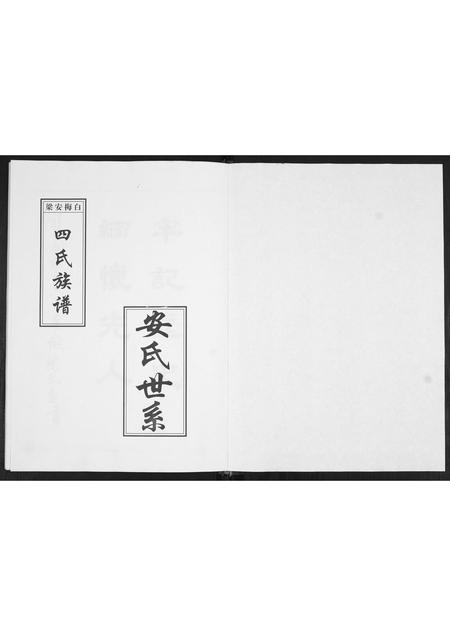 白梅安梁
四氏族谱
安氏世系